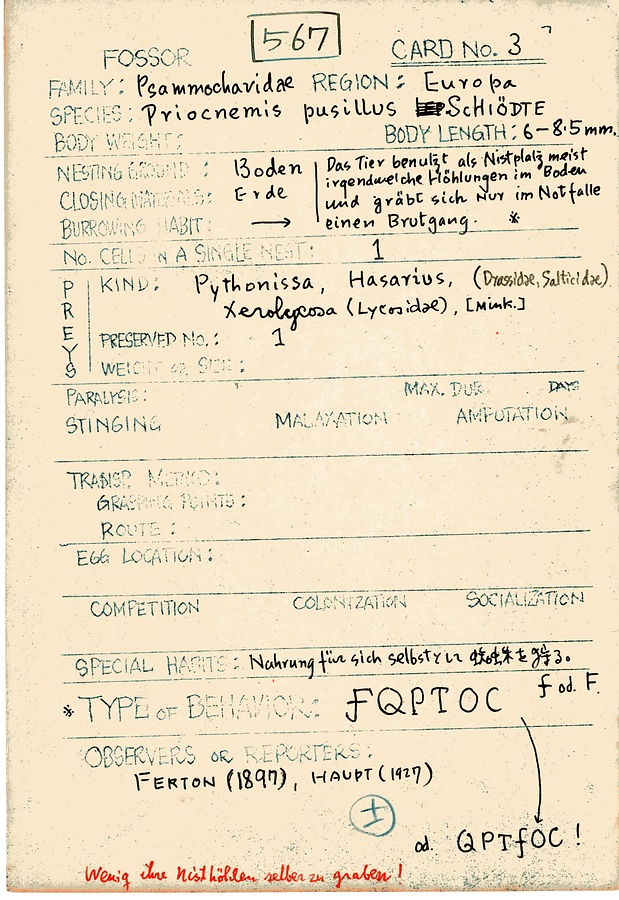 567
FOSSOR CARD No. 3
FAMILY: Psammocharidae REGION: Europa
SPECIES: Priocnemis pusillus SCHIÖDTE
BODY WEIGHT: BODY LENGTH: 6-8.5 mm.
NESTING GROUND: Boden
CLOSING MATERIALS: Erde
BURROWING HABIT: →
Das Tier benutzt als Nistplatz meist
irgendwelche Höhlungen im Boden
und gräbt sich nur im Notfalle
einen Brutgang. *
No. CELLS IN A SINGLE NEST: 1
PREYS
KIND: Pythonissa, Hasarius, (Drassidae, Salticidae)
Xerolycosa (Lycosidae), [Mink.]
PRESERVED No.: 1
WEIGHT or SIZE:
PARALYSIS: MAX. DUR. DAYS
STINGING MALAXATION AMPUTATION
TRANSP. METHOD:
GRASPING POINTS:
ROUTE:
EGG LOCATION:
COMPETITION COLONIZATION SOCIALIZATION
SPECIAL HABITS: Nahrung für sich selbst
* TYPE OF BEHAVIOR: FQPTOC f od. F.
OBSERVERS or REPORTERS:
FERTON (1897), HAUPT (1927)
±
od. QPTfOC!
Wenig ihre Nisthöhlen selber zu graben!